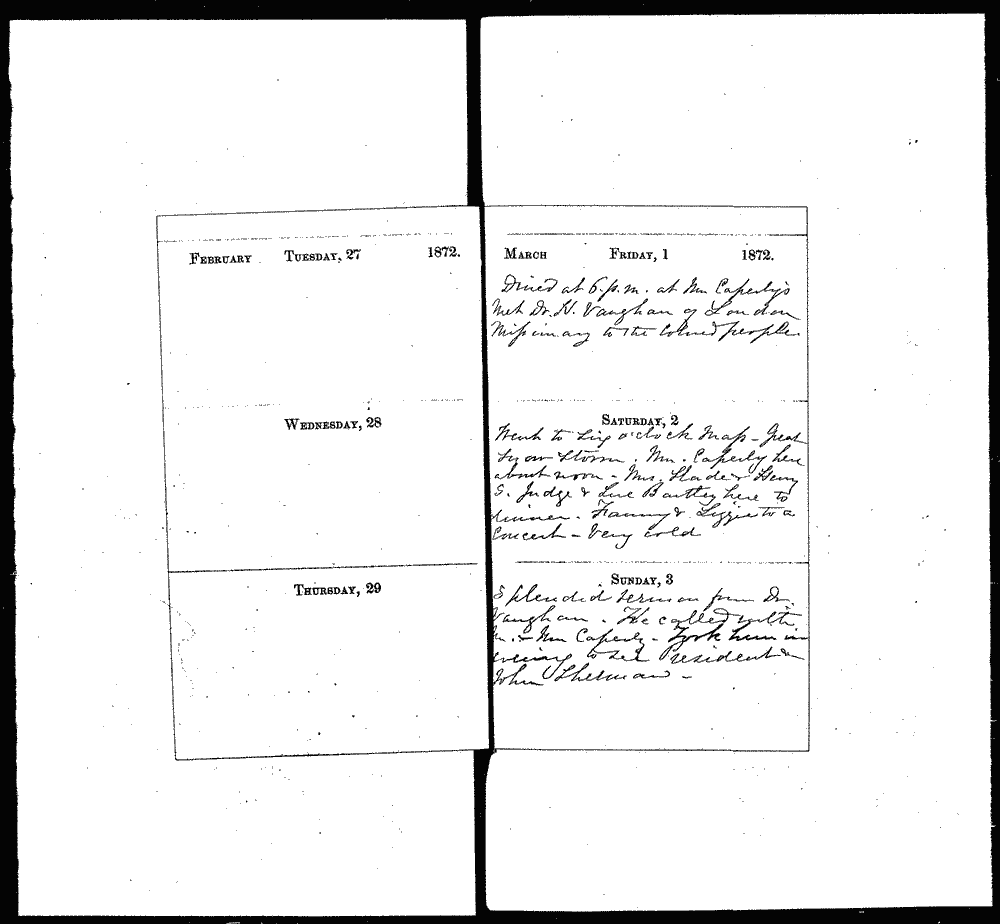 FEBRUARY TUESDAY, 27 1872.
WEDNESDAY, 28
THURSDAY, 29
MARCH FRIDAY, 1 1872.
Dined at 6 p.m. at Mrs Caperly's
Met Dr. H. Vaughan of London
Missionary to the Colored people
SATURDAY, 2
Went to Six o'clock Mass - Great
Snow Storm. Mrs. Caperly here
about noon - Mrs. Slade & Henry
S. Judge & Sue Bartley here to
dinner. Fanny & Lizzie to a
Concert - Very cold
SUNDAY, 3
Splendid sermon from Dr.
Vaughan. He called with
Mr. & Mrs Caperly - Took him in
evening to see President &
John Sherman -